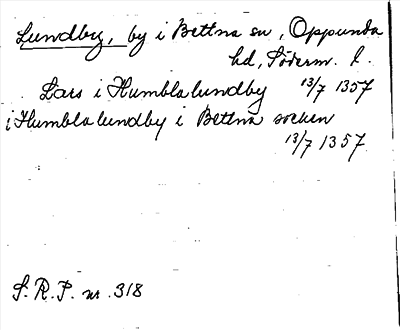 Lundby, by i Bettna sn, Oppunda
hd, Söderm. l.
Lars i Humblalundby 13/7 1357
i Humblalundby i Bettna socken
13/7 1357
S. R. P. nr 318